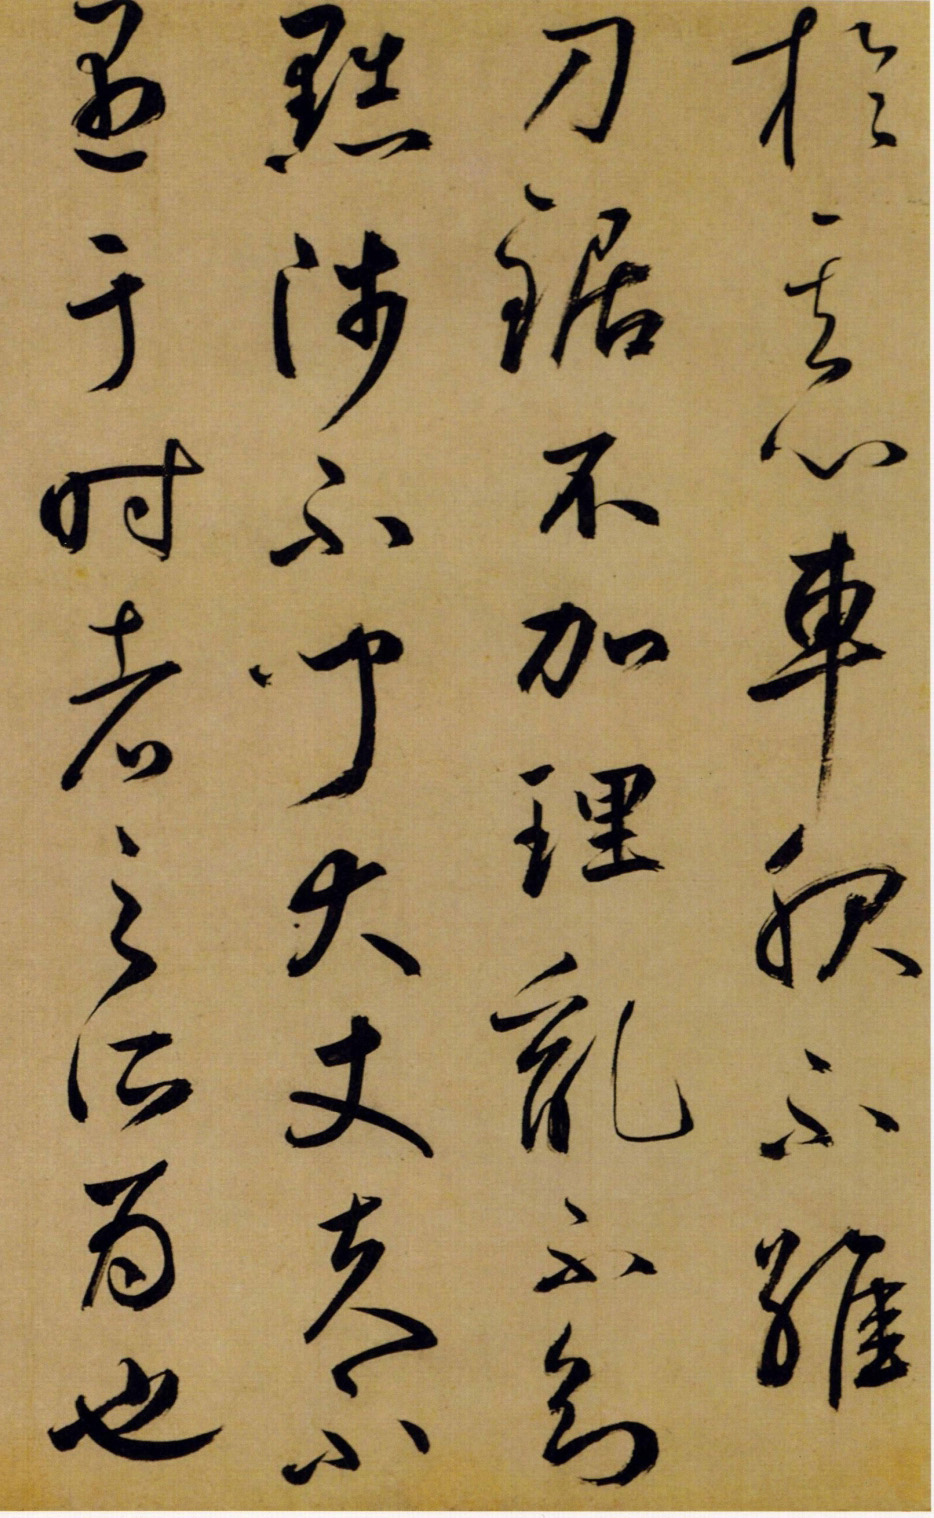 於其心車服不維
刀鋸不加理亂不知
黜陟不聞大丈夫不
遇于時者之所為也